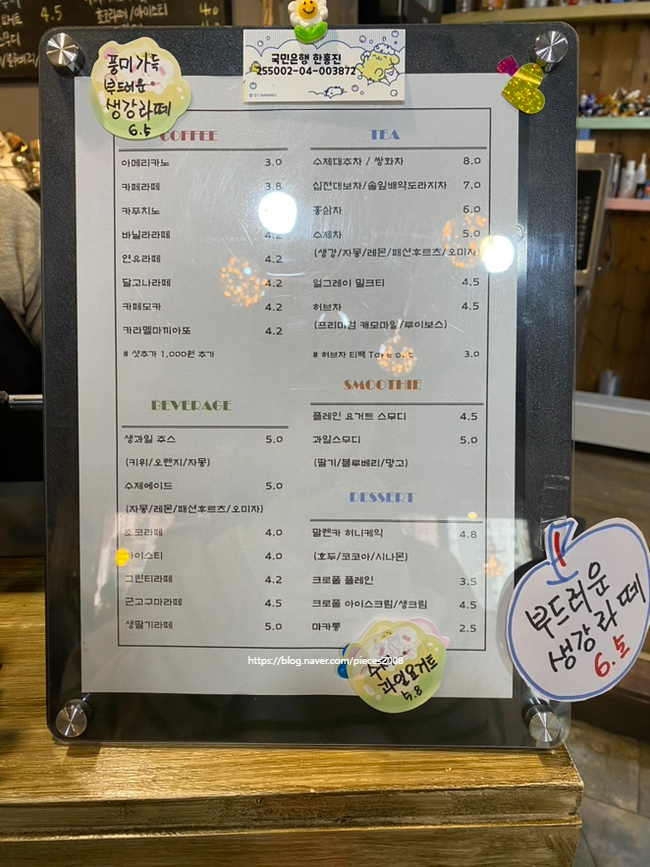 4.5
초코라떼/아이스티
4.0
국민은행 한홍진
255002-04-003872
풍미가득
부드러운
생강라떼
6.5
COFFEE
아메리카노 3.0
카페라떼 3.8
카푸치노
바닐라라떼 4.2
연유라떼 4.2
달고나라떼 4.2
카페모카 4.2
카라멜마끼아또 4.2
# 샷추가 1,000원 추가
BEVERAGE
생과일 쥬스 5.0
(키위/오렌지/자몽)
수제에이드 5.0
(자몽/레몬/패션후르츠/오미자)
초코라떼 4.0
아이스티 4.0
그린티라떼 4.2
군고구마라떼 4.5
생딸기라떼 5.0
TEA
수제대추차 / 쌍화차 8.0
십전대보차/솔잎배약도라지차 7.0
홍삼차 6.0
수제차 5.0
(생강/자몽/레몬/패션후르츠/오미자)
얼그레이 밀크티 4.5
허브차 4.5
(프리미엄 캐모마일/루이보스)
# 허브차 티백 Take out 3.0
SMOOTHIE
플레인 요거트 스무디 4.5
과일스무디 5.0
(딸기/블루베리/망고)
DESSERT
말렌카 허니케익 4.8
(호두/코코아/시나몬)
크로플 플레인 3.5
크로플 아이스크림/생크림 4.5
마카롱 2.5
수제
과일요거트
5.8
부드러운
생강라떼
6.5
https://blog.naver.com/pieces2008